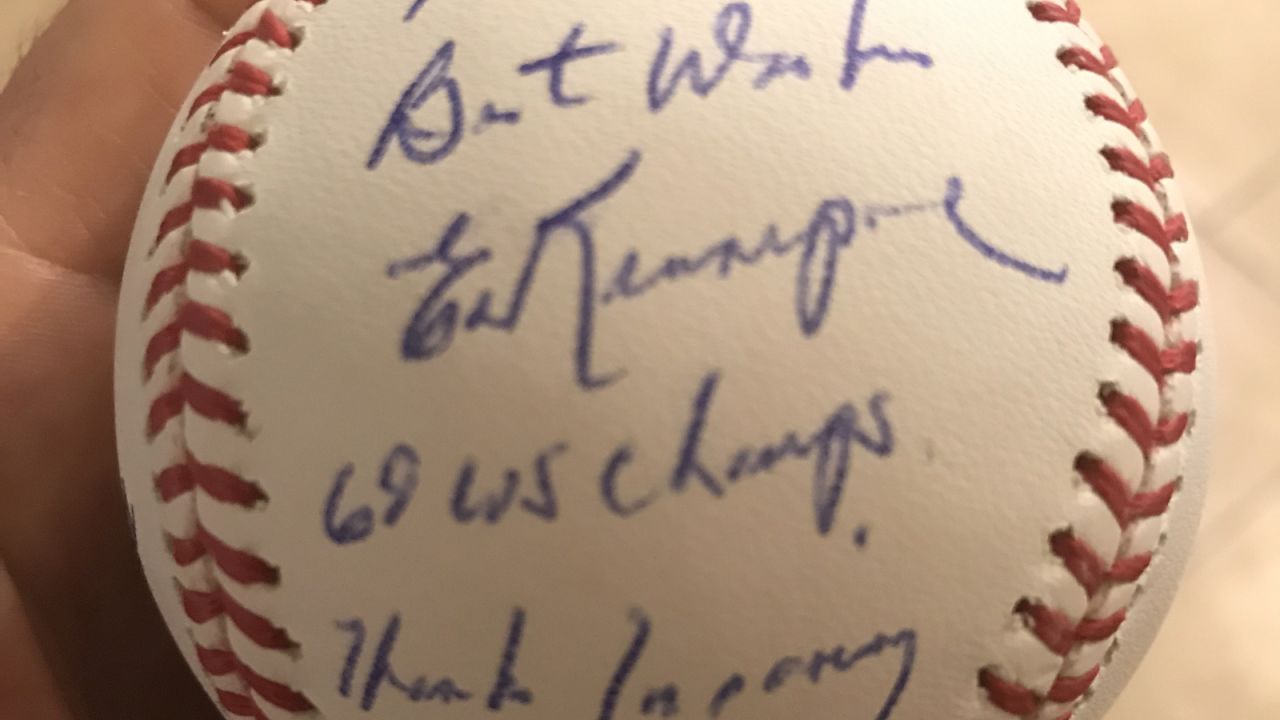 Best Wishes
Ed Kranepool
69 WS Champs.
Thanks for